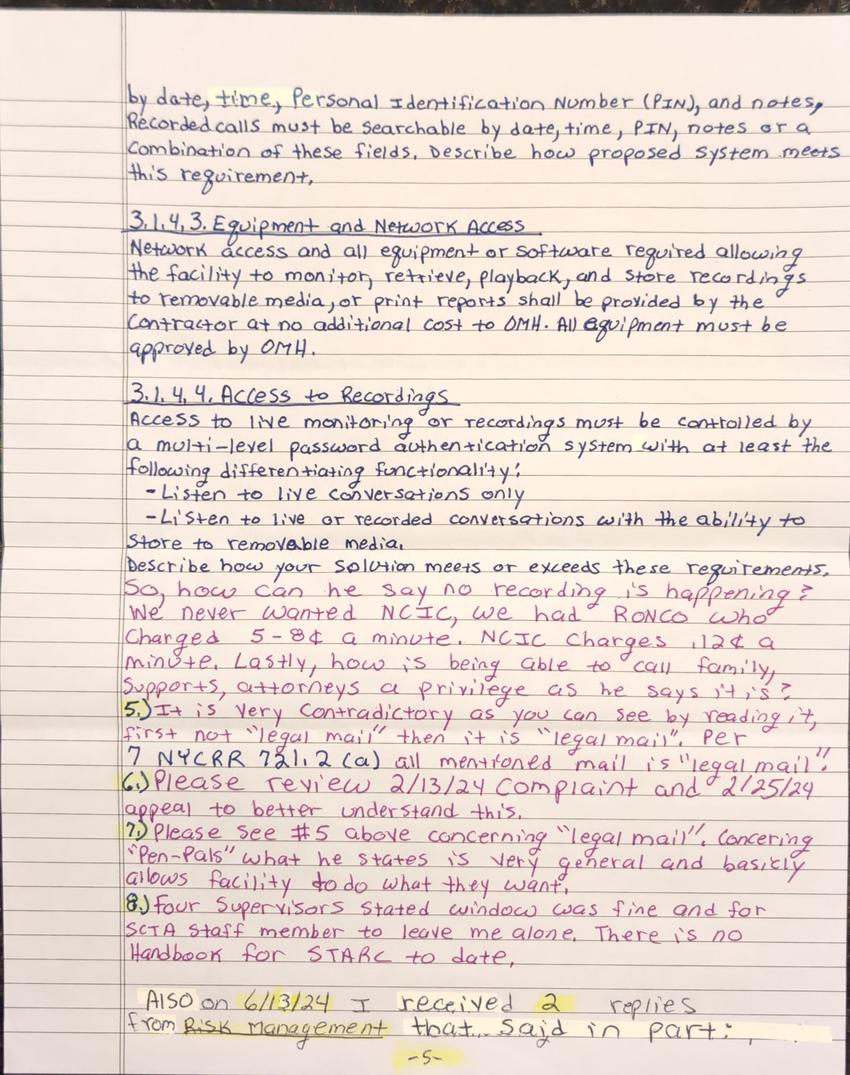 by date, time, Personal Identification Number (PIN), and notes,
Recorded calls must be searchable by date, time, PIN, notes or a
Combination of these fields. Describe how proposed system meets
this requirement.
3.1.4.3. Equipment and Network Access
Network access and all equipment or software required allowing
the facility to monitor, retrieve, playback, and store recordings
to removable media, or print reports shall be provided by the
Contractor at no additional cost to OMH. All equipment must be
approved by OMH.
3.1.4.4. Access to Recordings
Access to live monitoring or recordings must be controlled by
a multi-level password authentication system with at least the
following differentiating functionality:
- Listen to live conversations only
- Listen to live or recorded conversations with the ability to
Store to removable media.
Describe how your solution meets or exceeds these requirements.
So, how can he say no recording is happening?
We never wanted NCIC, we had RONCO who
Charged 5-8¢ a minute. NCIC Charges .12¢ a
minute. Lastly, how is being able to call family,
Supports, attorneys a privilege as he says it is?
5.) It is very contradictory as you can see by reading it,
first not "legal mail" then it is "legal mail". Per
7 NYCRR 721.2 (a) all mentioned mail is "legal mail"!
6.) Please review 2/13/24 Complaint and 2/25/24
appeal to better understand this.
7.) Please see #5 above concerning "legal mail". Concering
"Pen-Pals" what he states is very general and basicly
allows facility to do what they want.
8.) Four Supervisors stated window was fine and for
SCTA Staff member to leave me alone. There is no
Handbook for STARC to date.
Also on 6/13/24 I received 2 replies
from Risk Management that said in part:
-5-